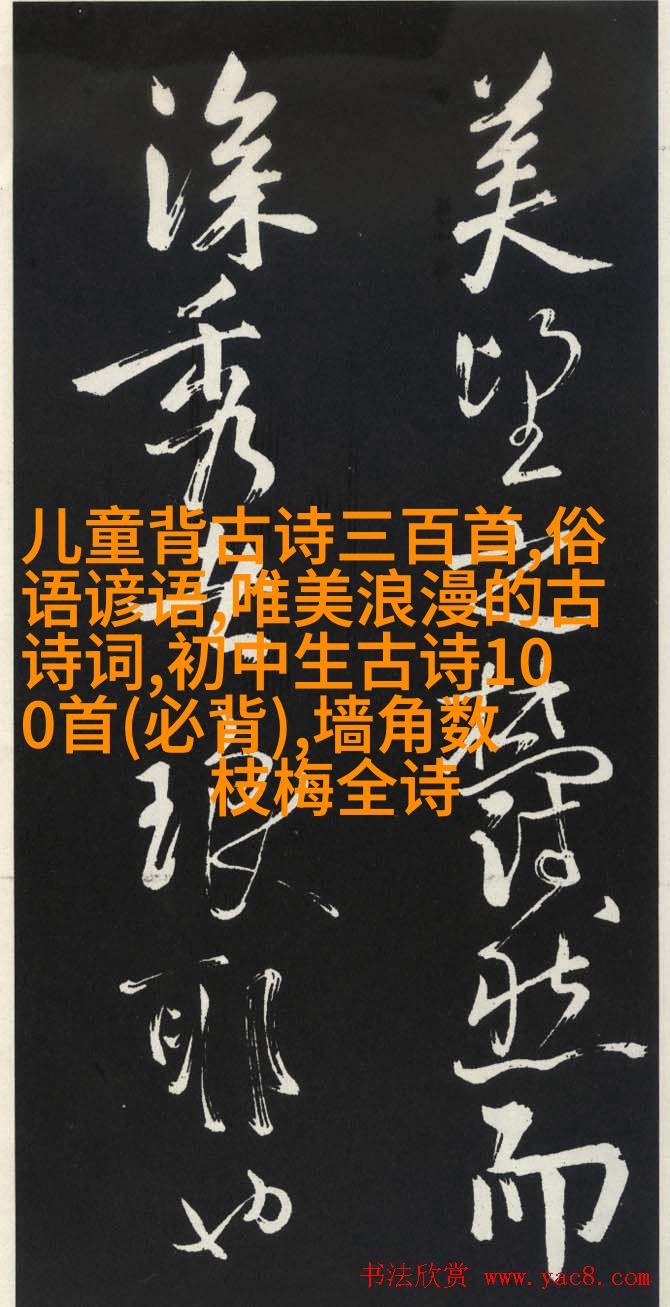 美望之蔚然而
深秀者琅耶也
儿童背古诗三百首,俗
语谚语,唯美浪漫的古
诗词,初中生古诗10
0首(必背),墙角数
枝梅全诗
书法欣赏 www.yac8.com